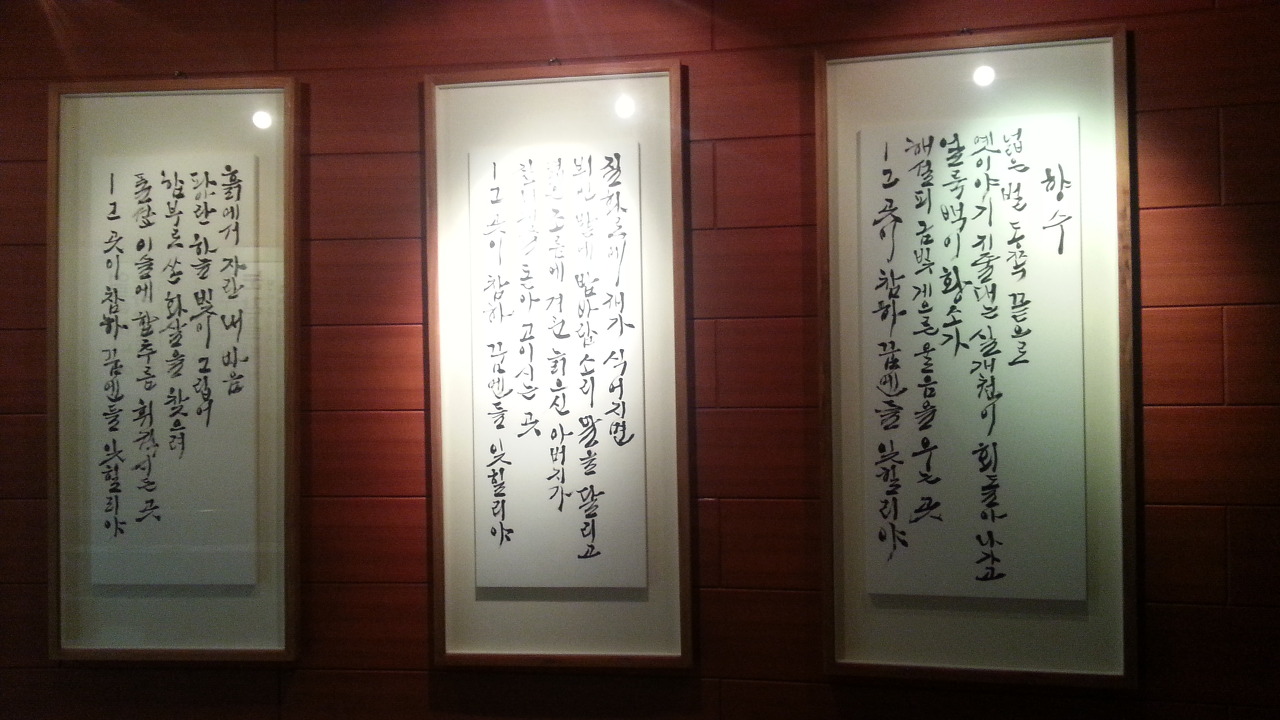 향수
넓은 벌 동쪽 끝으로
옛이야기 지줄대는 실개천이 회돌아 나가고
얼룩백이 황소가
해설피 금빛 게으른 울음을 우는 곳
ㅡ그 곳이 참하 꿈엔들 잊힐리야
질화로에 재가 식어지면
뷔인 밭에 밤바람 소리 말을 달리고
엷은 조름에 겨운 늙으신 아버지가
짚벼개를 돋아 고이시는 곳
ㅡ그 곳이 참하 꿈엔들 잊힐리야
흙에서 자란 내 마음
파아란 하늘 빛이 그립어
함부로 쏜 화살을 찾으려
풀섶 이슬에 함추름 휘적시는 곳
ㅡ그 곳이 참하 꿈엔들 잊힐리야